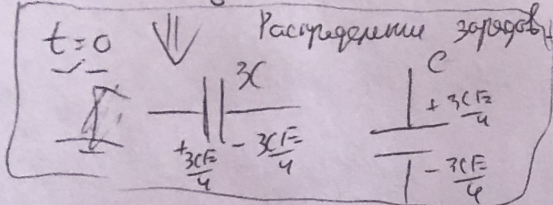 t=0 ⇓ Распределение зарядов
3C
C
+3CE/4 -3CE/4
+3CE/4
-3CE/4